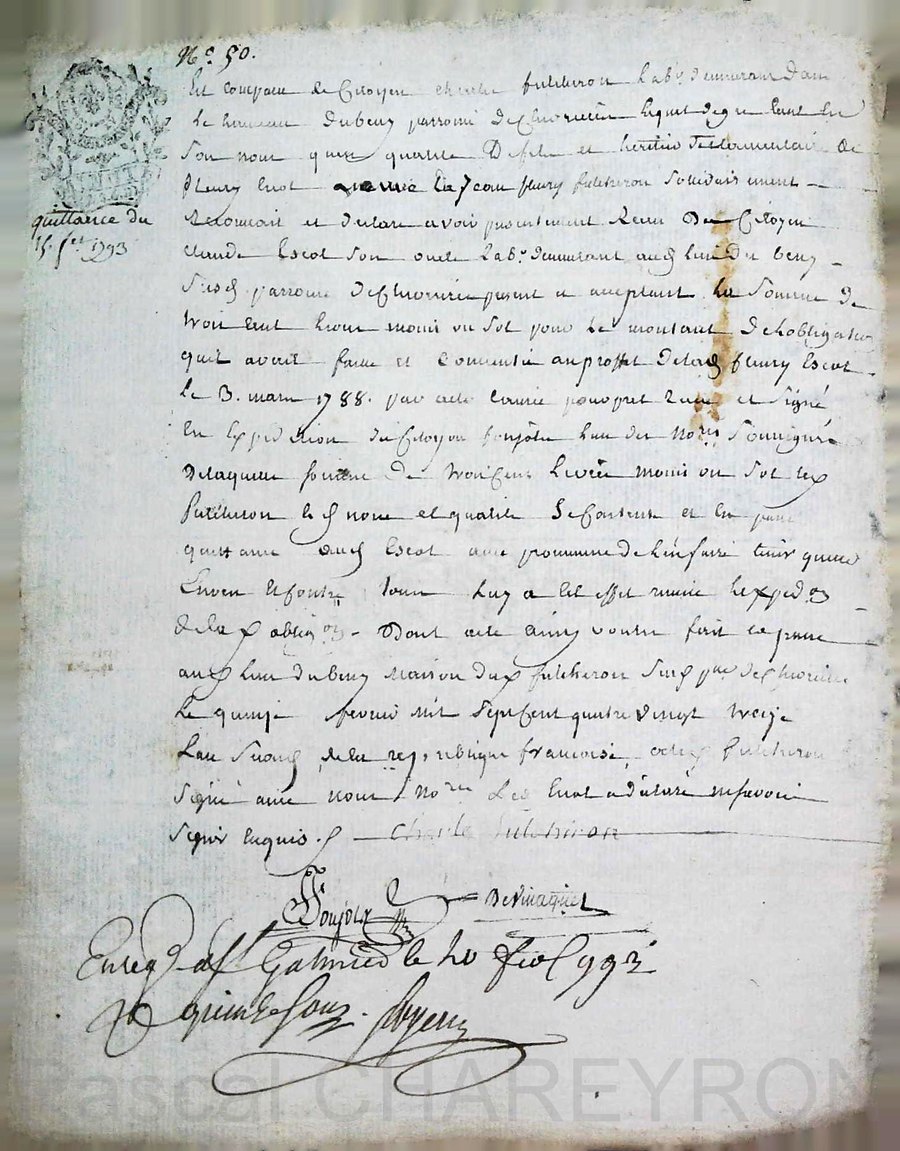 N.o 50.
Est comparu le Citoyen charle fulcheron lab.r demeurant dans
le hameau Dubeny parroisse de Chevrieres lequel de gré tant en
Son nom quen qualité De fils et héritier Testamentaire de
fleury Escot Jean fleury fulcheron Solidairement
quittance du
15. f.er 1793
Reconnoit et declare avoir présentement Receu Du Citoyen
claude Escot Son oncle Lab.r demeurant aud lieu du beny
Susd. parroisse de Chevrieres présent et acceptant La Somme De
trois Cent livres moins un Sol pour le montant De Lobligation
quil avoit faite et Consentie au proffit de lad fleury Escot
Le 3. mars 1788. par acte et Signé
En Expedition du Citoyen bonjour Lun des No.res Soussignés
De laquelle Somme De trois Cens Livres moins un Sol led
fulcheron esd. nom et qualité Se Contente et en passe
quittance aud Escot avec promesse de L'en faire tenir quitte
Envers Et Contre Tous Luy a Cet effet remis l'exped.on
de lad. oblig.on. Dont acte ainsy voulu fait et passé
aud Lieu dubeny Maison dud fulcheron Susd p.sse de Chevrieres
Le quinze fevrier Mil Sept Cent quatre vingt treize
Lan Second de la republique francoise, et led fulcheron
Signé avec nous No.res Led Escot a déclaré ne savoir
Signer Enquis.
Charle fulcheron
Bonjour
Enreg. a S.t Galmier le 20 fev. 1793
R quinze Sous.
Pascal CHAREYRON